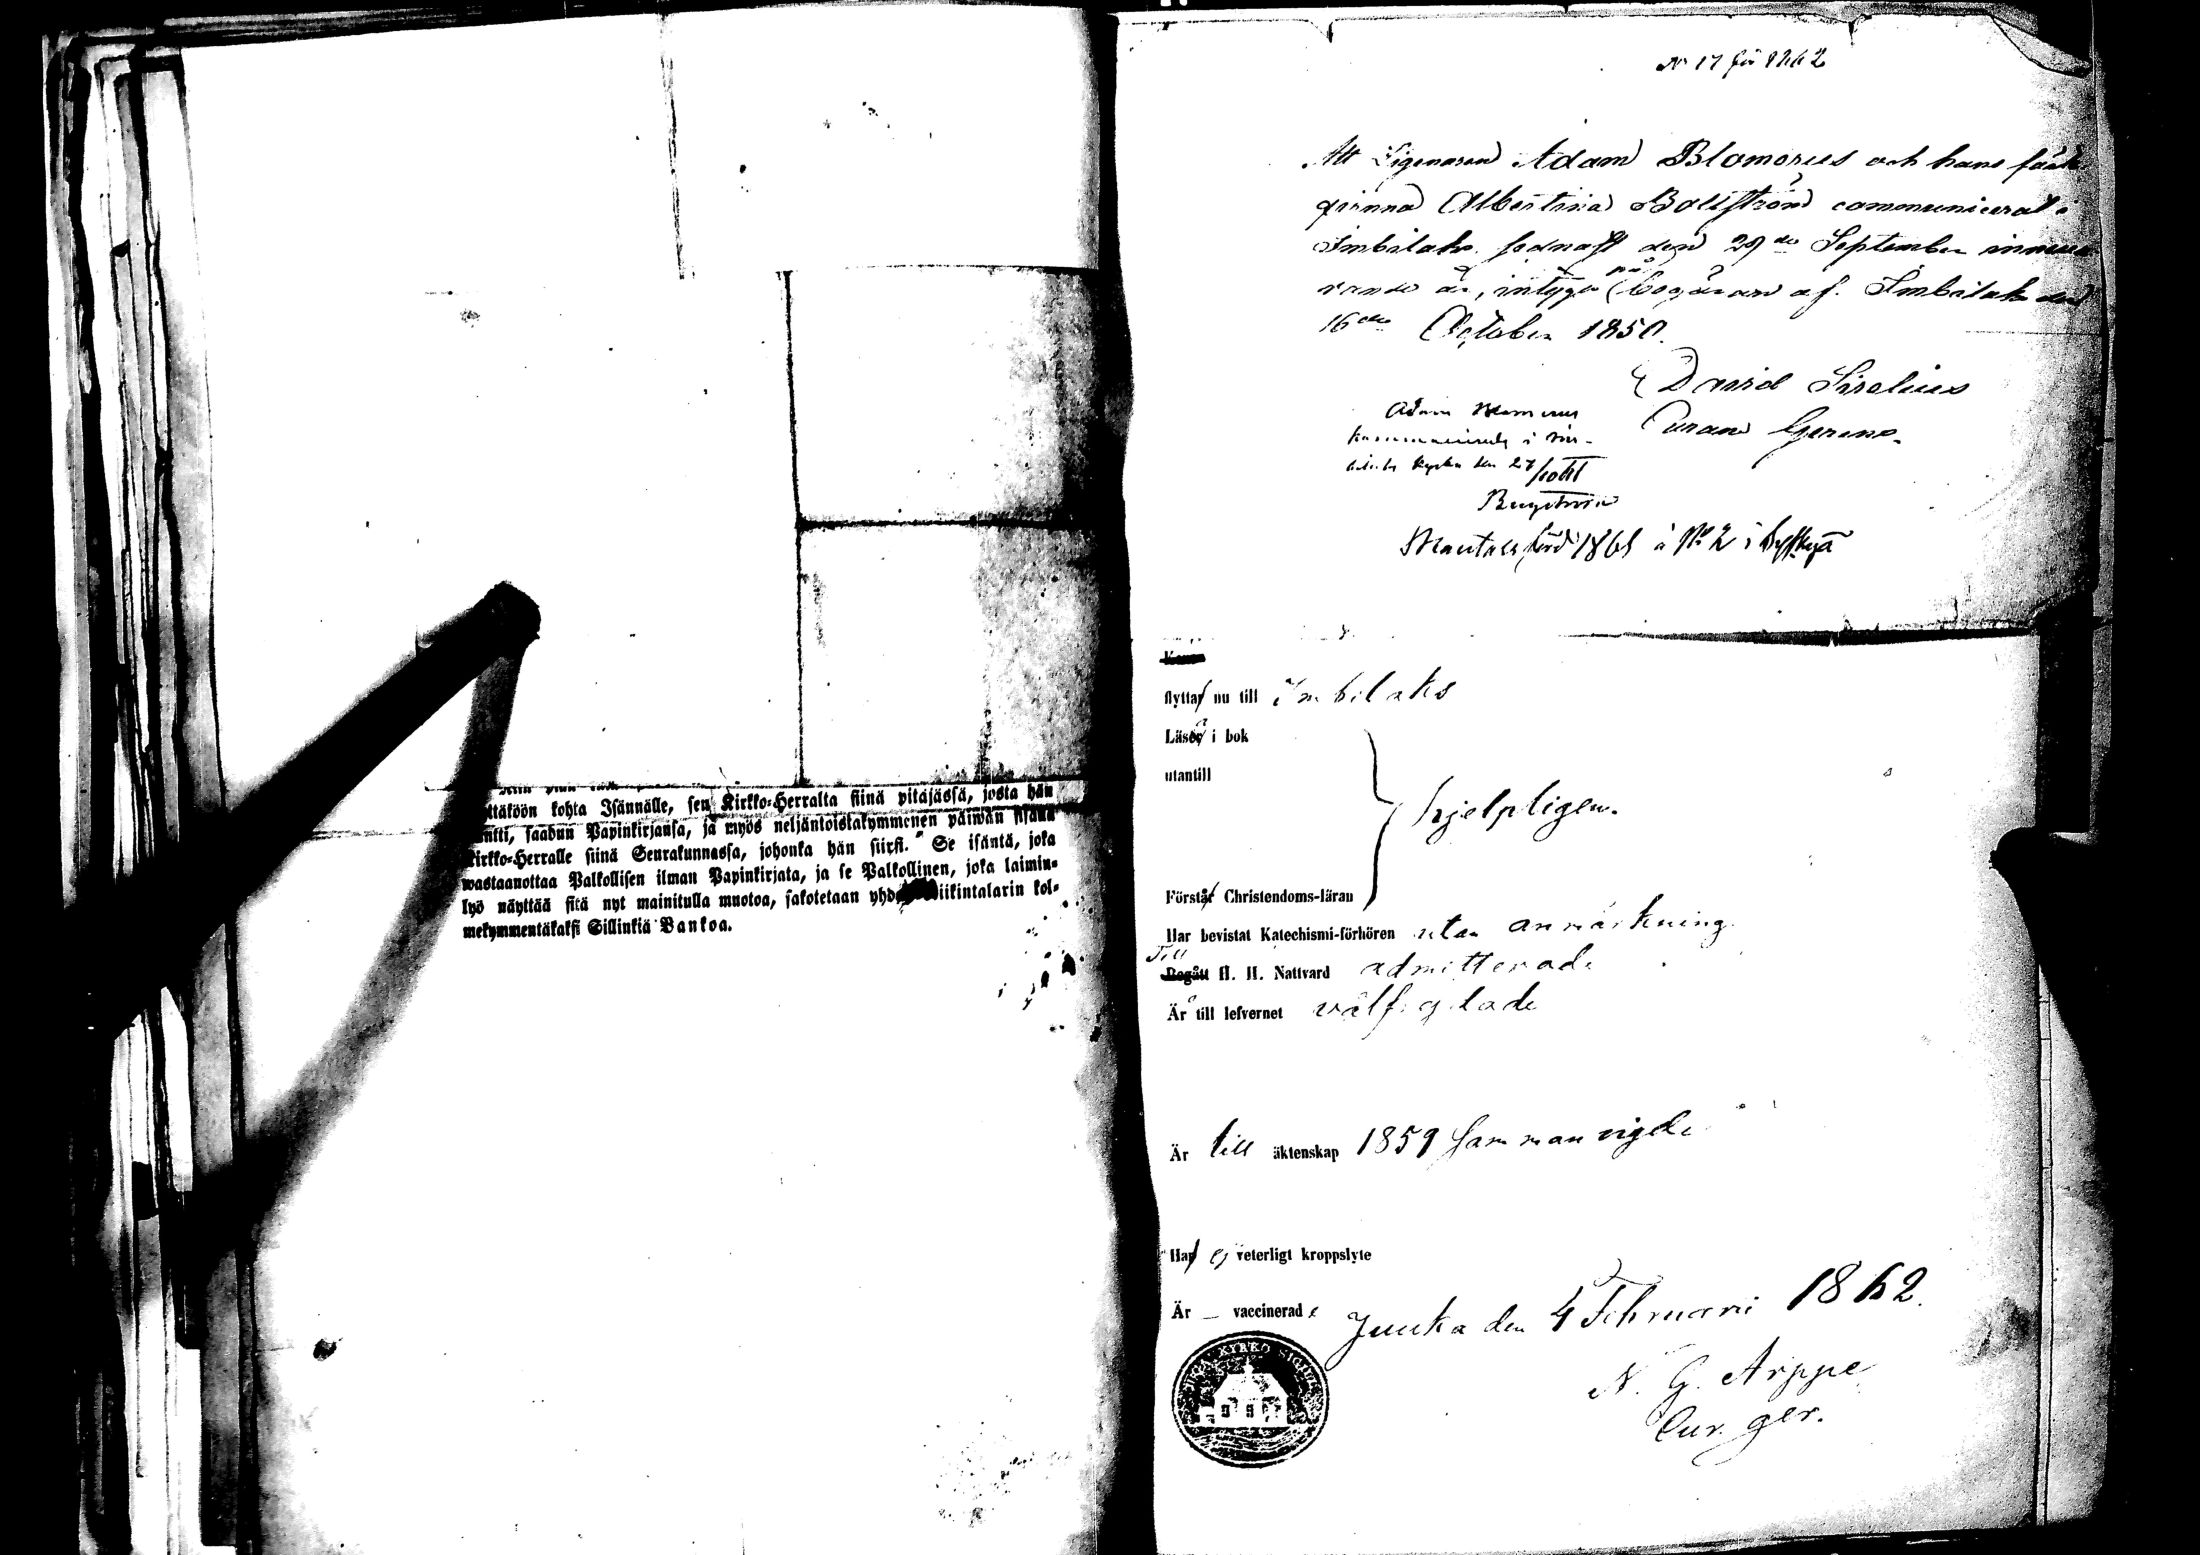 ttäköön kohta Isännälle, sen Kirkko-Herralta siinä pitäjässä, josta hän
ntti, saadun Papinkirjansa, ja myös neljäntoistakymmenen päiwän sisällä
Kirkko-Herralle siinä Seurakunnassa, johonka hän siirsi." Se isäntä, joka
wastaanottaa Palkollisen ilman Papinkirjata, ja se Palkollinen, joka laimin-
lyö näyttää sitä nyt mainitulla muotoa, sakotetaan yhd iikintalarin kol-
mekymmentäkaksi Sillinkiä Bankoa.
No 17 för 1862
Att Adam Blomerus och hans fäste
qvinna Albertina communicerat i
Imbilaks sednast den 29de September innewa
rande år, intygar på begäran af. Imbilaks den
16de October 1850.
David Sirelius
Curam Gerens.
Adam
i Im-
kyrka den 27/10
Mantals förd 1861 à No 2 i
flytta nu till Imbilaks
Läsa i bok
utantill
hjelpligen.
Förstå Christendoms-läran
Har bevistat Katechismi-förhören utan anmärkning.
Till
Begått H. H. Nattvard admitterade
Är till lefvernet välfrejdade
Är till äktenskap 1859 sammanvigde
Ha ej veterligt kroppslyte
Är — vaccinerade
Juuka den 4 Februari 1862.
N. G. Arppe
Cur. ger.
KYRKO SIGILL